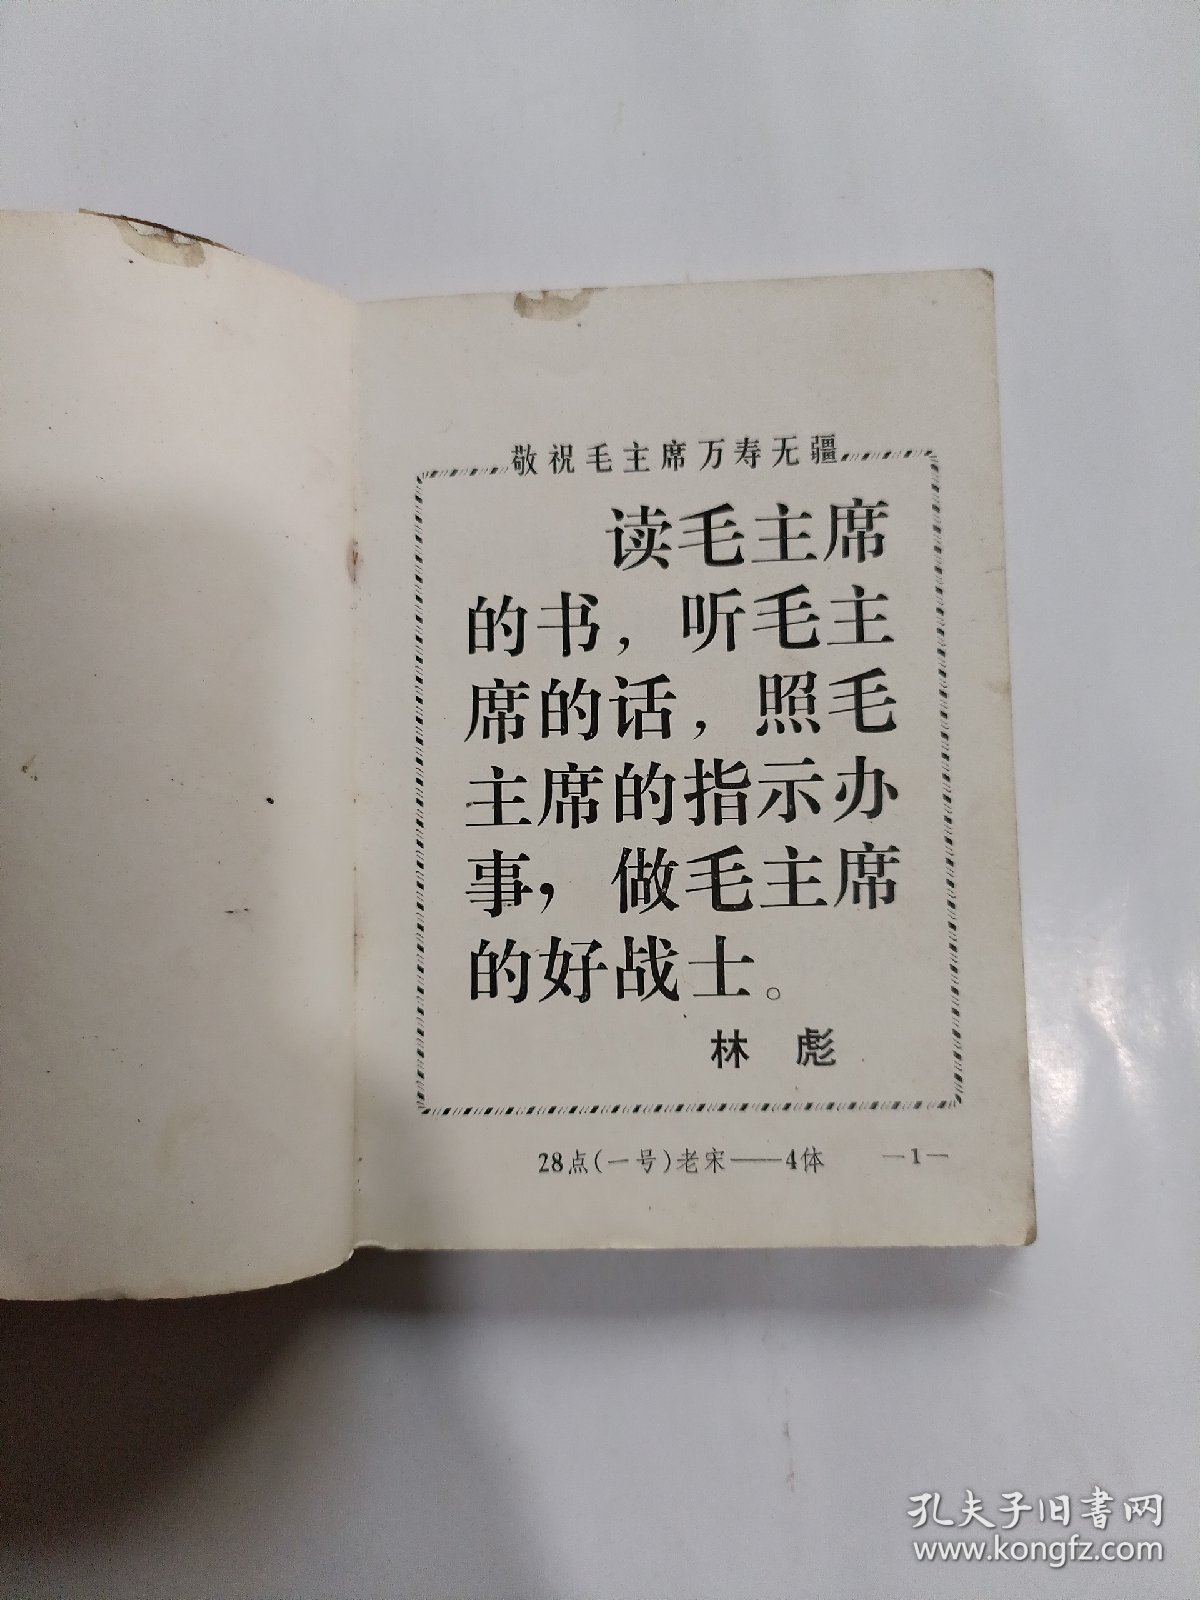 敬祝毛主席万寿无疆
读毛主席
的书，听毛主
席的话，照毛
主席的指示办
事，做毛主席
的好战士。
林 彪
28点(一号)老宋——4体 —1—
孔夫子旧书网
www.kongfz.com